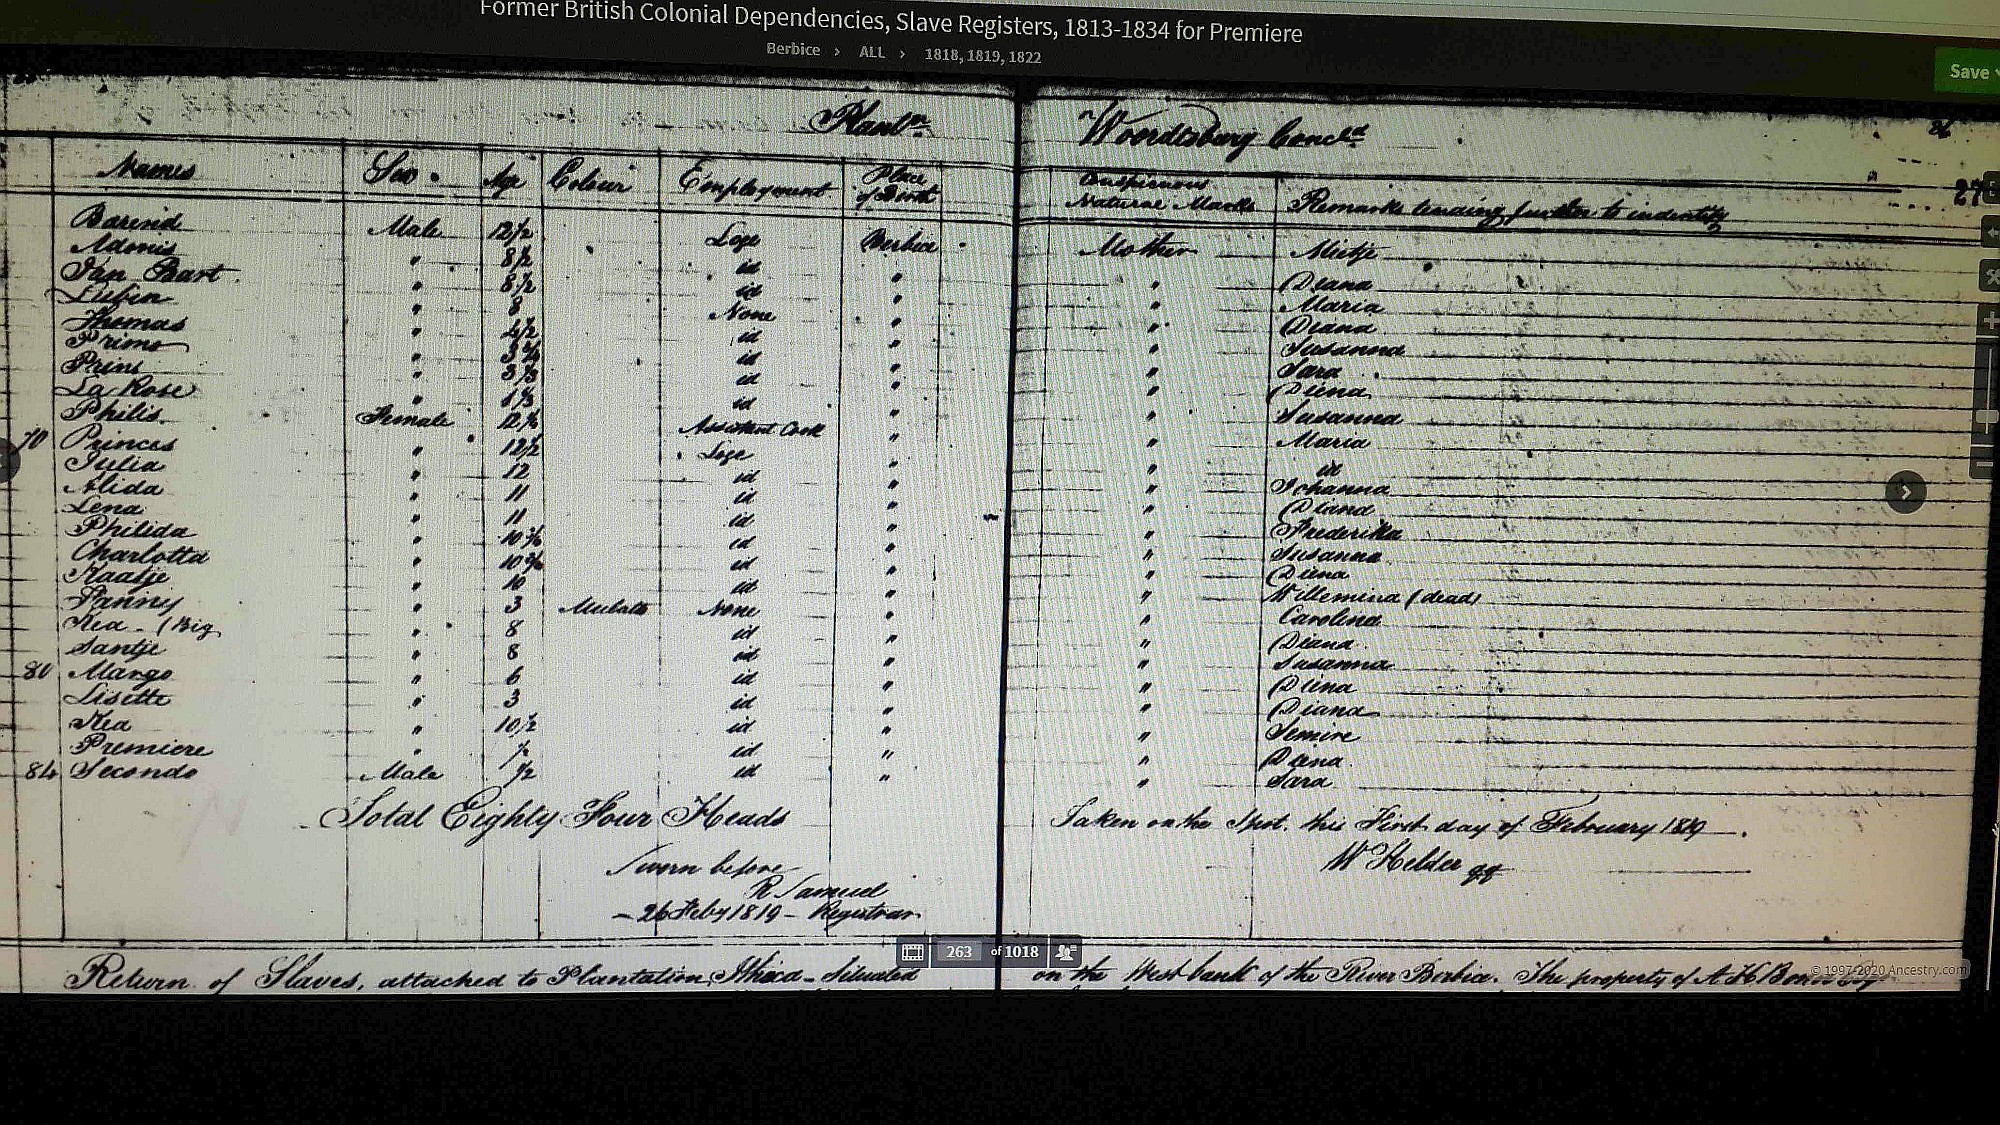 Former British Colonial Dependencies, Slave Registers, 1813-1834 for Premiere
Berbice > ALL > 1818, 1819, 1822
Save
Plantn Woordsburg Concld 26
27
Names Sex Age Colour Employment Place of Birth Conspicuous Naturae Marks Remarks tending further to indentify
Barend Male 12 1/2 Loge Berbice Mother Mietje
Adonis " 8 1/2 id " " Diana
Jan Bart " 8 1/2 id " " Maria
Lubin " 8 None " " Diana
Thomas " 4 1/2 id " " Susanna
Primo " 3 id " " Sara
Prins " 3 id " " Diena
La Rose " 1 id " " Susanna
Philis Female 12 Assistant Cook " " Maria
70 Princes " 12 1/2 Loge " " id
Julia " 12 id " " Johanna
Alida " 11 id " " Diana
Lena " 11 id " " Frederika
Philida " 10 id " " Susanna
Charlotta " 10 id " " Diena
Kaatje " 10 id " " Willemina (dead)
Fanny " 3 Mulatto None " " Carolina
Kea - (Big " 8 id " " Diana
Santje " 8 id " " Susanna
80 Mango " 6 id " " Diena
Lisette " 3 id " " Diana
Kea " 10/2 id " " Semire
Premiere " id " " Diena
84 Secondo Male 1/2 id " " Sara
Total Eighty Four Heads Taken on the Spot, this First day of February 1819
Sworn before W Helder qq
R Samuel
- 26 Feby 1819 - Registrar
263 of 1018
Return of Slaves, attached to Plantation Ithica - Situated on the West bank of the River Berbice. The property of A H
© 1997-2020 Ancestry.com